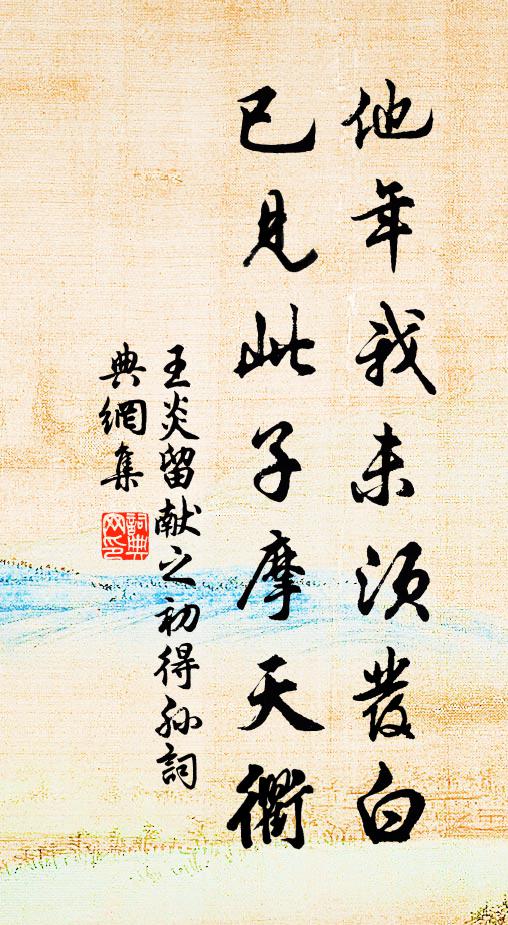 他年我未须發白
已见此子摩天衢
王炎留献之初得孙詞
典網集
詞典
网印